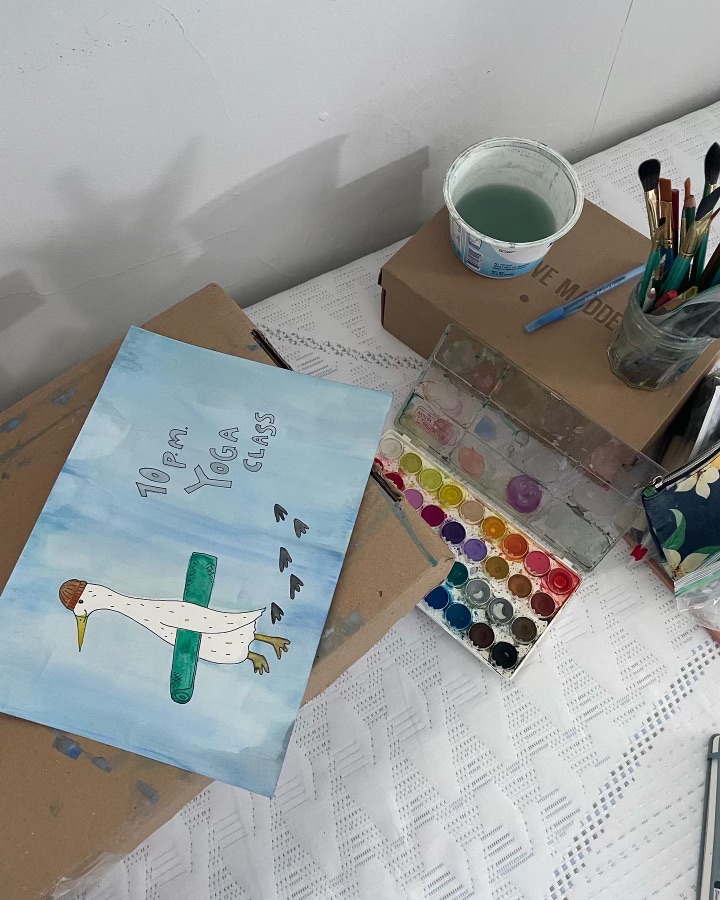 10 p.m.
YOGA
CLASS
VE MADDE